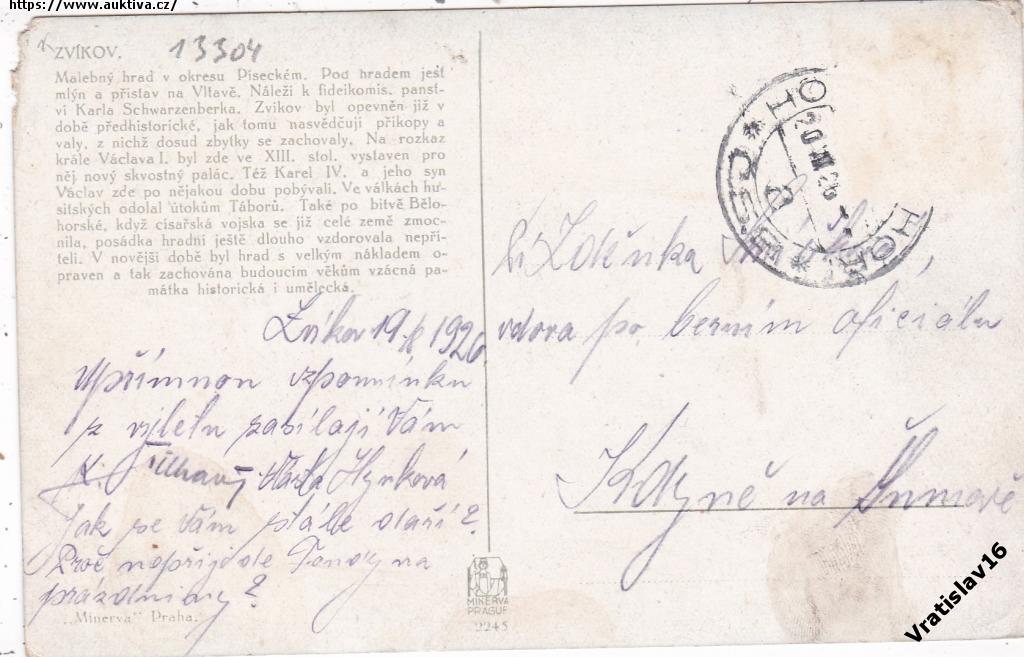 https://www.auktiva.cz/
13304
ZVÍKOV.
Malebný hrad v okresu Píseckém. Pod hradem jest
mlýn a přístav na Vltavě. Náleží k fideikomis. panst-
ví Karla Schwarzenberka. Zvíkov byl opevněn již v
době předhistorické, jak tomu nasvědčují příkopy a
valy, z nichž dosud zbytky se zachovaly. Na rozkaz
krále Václava I. byl zde ve XIII. stol. vystaven pro
něj nový skvostný palác. Též Karel IV. a jeho syn
Václav zde po nějakou dobu pobývali. Ve válkách hu-
sitských odolal útokům Táborů. Také po bitvě Bělo-
horské, když císařská vojska se již celé země zmoc-
nila, posádka hradní ještě dlouho vzdorovala nepří-
teli. V novější době byl hrad s velkým nákladem o-
praven a tak zachována budoucím věkům vzácná pa-
mátka historická i umělecká.
Zvíkov 1926
Upřímnou vzpomínku
z výletu zasílají Vám
Hynková
Jak se Vám stále daří?
Proč na
prázdniny?
"Minerva" Praha.
MINERVA
PRAGUE
2245
Zdeňka
vdova po berním oficiálu
Kdyně na Šumavě
Vratislav16